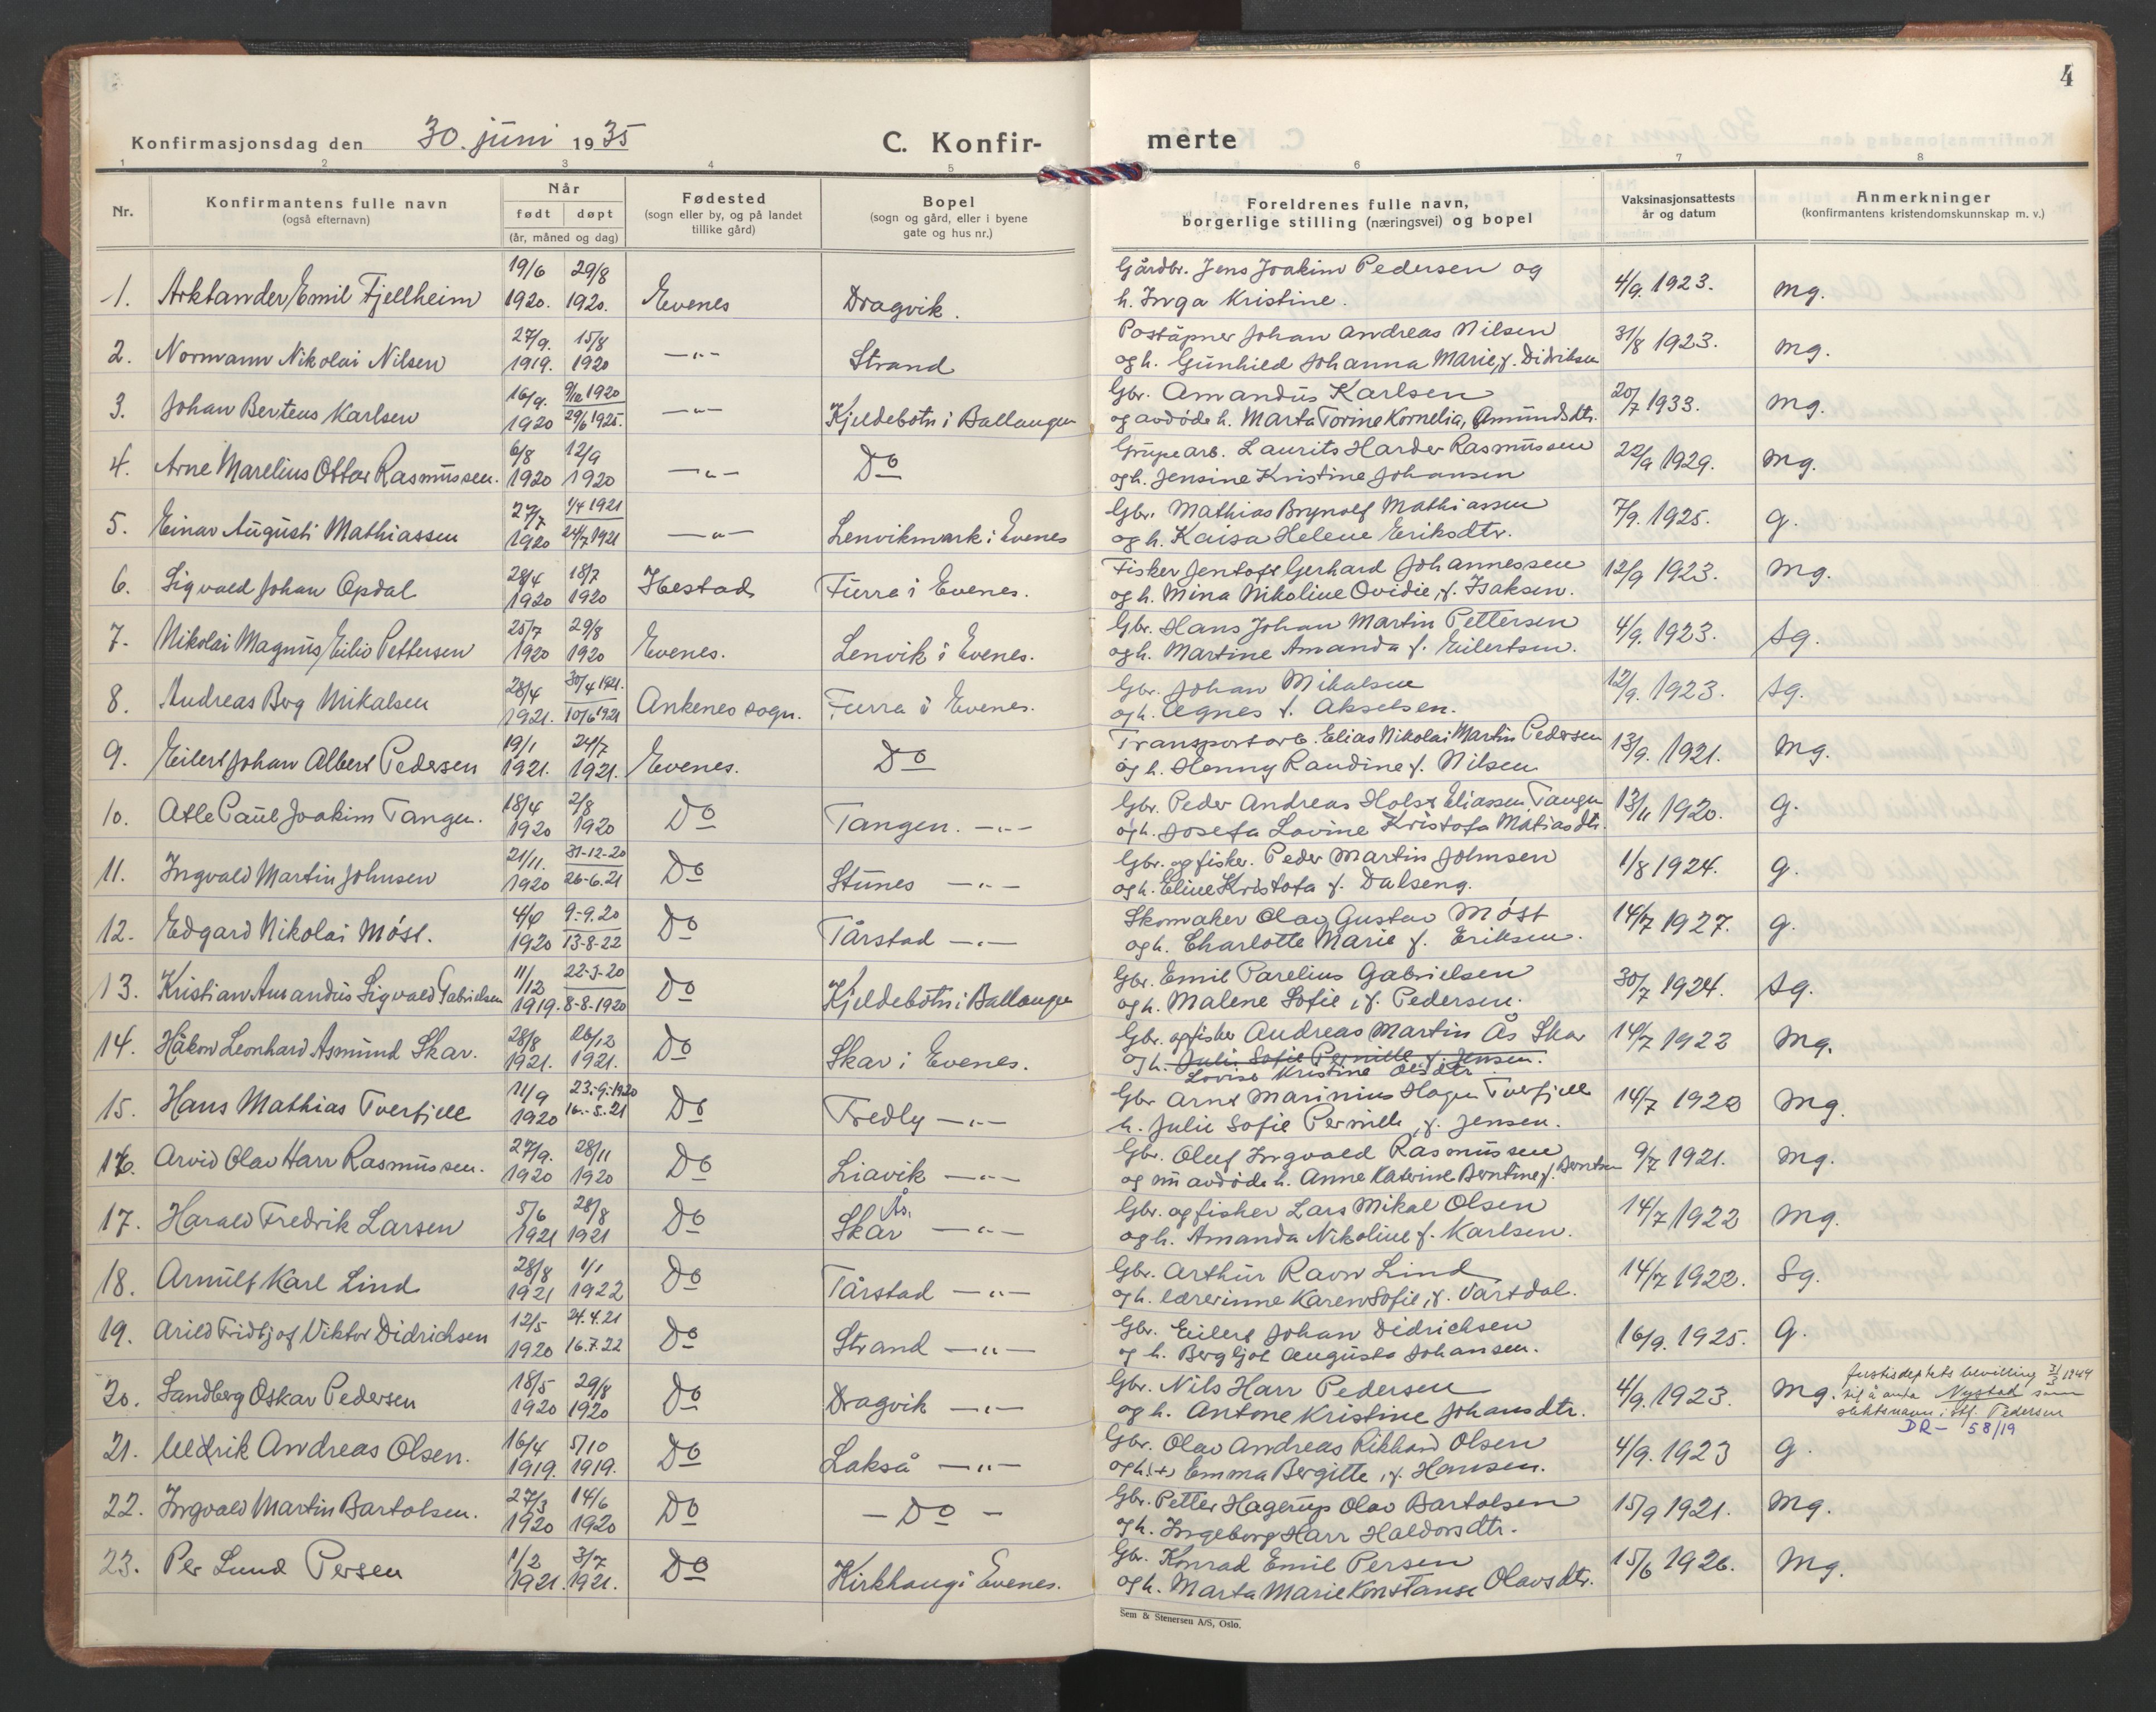 4
Konfirmasjonsdag den 30. juni 1935
C. Konfir-
merte
1 2 3 4 5 6 7 8
Nr.
Konfirmantens fulle navn
(også efternavn)
Når
født døpt
(år, måned og dag)
Fødested
(sogn eller by, og på landet
tillike gård)
Bopel
(sogn og gård, eller i byene
gate og hus nr.)
Foreldrenes fulle navn,
borgerlige stilling (næringsvei) og bopel
Vaksinasjonsattests
år og datum
Anmerkninger
(konfirmantens kristendomskunnskap m. v.)
19/6 29/8 Gårdbr. Jens Joakim Pedersen og
1. Arktander Emil Fjellheim 1920. 1920. Evenes Dragvik. h. Inga Kristine. 4/9. 1923. Mg.
27/9. 15/8 Poståpner Johan Andreas Nilsen
2. Normann Nikolai Nilsen 1919. 1920 —"— Strand og h. Gunhild Johanna Marie, f. Didriksen 31/8 1923. Mg.
16/9. 9/12 1920 Gbr. Amandus Karlsen
3. Johan Berteus Karlsen 1920 29/6 1925. —"— Kjeldebotn i Ballangen og avdøde h. Marta Torine Kornelia, Amundsdtr. 20/7 1933. Mg.
6/8 12/9 Grupearb. Laurits Harder Rasmussen
4. Arne Marelius Ottar Rasmussen. 1920 1920 —"— Do og h. Jensine Kristine Johansen 22/9 1929. Mg.
27/7 1/4 1921 Gbr. Mathias Brynolf Mathiassen
5. Einar Augusti Mathiassen 1920 24/7 1921 —"— Lenvikmark i Evenes og h. Kaisa Helene Eriksdtr. 7/9. 1925. G.
28/4 18/7 Fisker Jentoft Gerhard Johannessen
6. Sigvald Johan Opdal 1920 1920 Hestad Furra i Evenes. og h. Mina Nikoline Ovidie, f. Isaksen. 12/9 1923. Mg.
25/7 29/8 Gbr. Hans Johan Martin Pettersen
7. Nikolai Magnus Eilif Pettersen 1920 1920 Evenes. Lenvik i Evenes. og h. Martine Amanda f. Eilertsen. 4/9. 1923. Sg.
28/4 30/4 1921. Gbr. Johan Mikalsen
8. Andreas Berg Mikalsen 1921. 10/6 1921 Ankenes sogn. Furra i Evenes. og h. Agnes f. Akselsen. 12/9. 1923. Sg.
19/1 24/7 Transportarb. Elias Nikolai Martin Pedersen
9. Eilert Johan Albert Pedersen 1921. 1921. Evenes. Do og h. Henny Randine f. Nilsen 13/9. 1921. Mg.
18/4 2/8 Gbr. Peder Andreas Holst Eliassen Tangen
10. Atle Paul Joakim Tangen. 1920 1920 Do Tangen. —"— og h. Josefa Lovine Kristofa Matiasdtr. 13/11 1920. G.
21/11. 31-12-20 Gbr. og fisker. Peder Martin Johnsen
11. Ingvald Martin Johnsen 1920 26-6.21 Do Stunes —"— og h. Eline Kristofa f. Dalseng. 1/8 1924. G.
9.-9.20 Skomaker Olav Gustav Møst
12. Edgard Nikolai Møst. 1920 13-8-22 Do Tårstad —"— og h. Charlotte Marie f. Eriksen. 14/7 1927. G.
11/12 22-3-20 Gbr. Emil Parelius Gabrielsen
13. Kristian Amandus Sigvald Gabrielsen 1919. 8-8-1920 Do Kjeldebotn i Ballangen og h. Malene Sofie, f. Pedersen. 30/7 1924. Sg.
28/8 26/12 Gbr. og fisker Andreas Martin Ås Skar
14. Håkon Leonhard Asmund Skar. 1921. 1921. Do Skar i Evenes. og h. Julie Sofie Pernille f. Jensen. 14/7 1922 Mg.
Lovise Kristine Olsdtr
11/9 23.-9.-1920 Gbr Arnt Marinius Hagen Tverfjell
15. Hans Mathias Tverfjell 1920 16.-5.21 Do Fredly —"— h. Julie Sofie Pernille, f. Jensen. 14/7 1922 Mg.
27/9. 28/11 Gbr. Oluf Ingvald Rasmussen
16. Arvid Olav Harr Rasmussen. 1920 1920 Do Liavik —"— og nu avdøde h. Anne Katerine Berntine f. Berntsen 9/7 1921. Mg.
5/6 28/8 Ås. Gbr. og fisker Lars Mikal Olsen
17. Harald Fredrik Larsen 1921 1921 Do Skar —"— og h. Amanda Nikoline f. Karlsen. 14/7 1922 Mg.
28/8 1/1 Gbr. Arthur Ravn Lind
18. Arnulf Karl Lind 1921 1922 Do Tårstad —"— og h. lærerinne Karen Sofie, f. Vartdal. 14/7 1922. Sg.
12/5 24.4.21 Gbr. Eilert Johan Didrichsen
19. Arild Fridtjof Viktor Didrichsen 1920 16.7.22 Do Strand —"— og h. Bergljot Augusta Johansen. 16/9. 1925. G.
18/5 29/8 Gbr. Nils Harr Pedersen Justisdeptets bevilling 3/3 1944
20. Sandberg Oskar Pedersen 1920 1920 Do Dragvik —"— og h. Antone Kristine Johansdtr. 4/9. 1923. Mg. til å anta Nystad som
slektsnavn i stf. Pedersen
DR- 58/19
16/4 5/10 Gbr. Olav Andreas Rikhard Olsen
21. Uldrik Andreas Olsen. 1919. 1919. Do Lakså —"— og h. (+) Emma Bergitte, f. Hansen. 4/9. 1923 G.
27/3 14/6 Gbr. Petter Hagerup Olav Bartolsen
22. Ingvald Martin Bartolsen. 1920 1920 Do — Do — og h. Ingeborg Harr Haldorsdtr. 15/9 1921. Mg.
1/2 3/7 Gbr. Konrad Emil Persen
23. Per Lund Persen 1921. 1921. Do Kirkhaug i Evenes. og h. Marta Marie Konstanse Olavsdtr. 15/6 1926. Mg.
Sem & Stenersen A/S, Oslo.